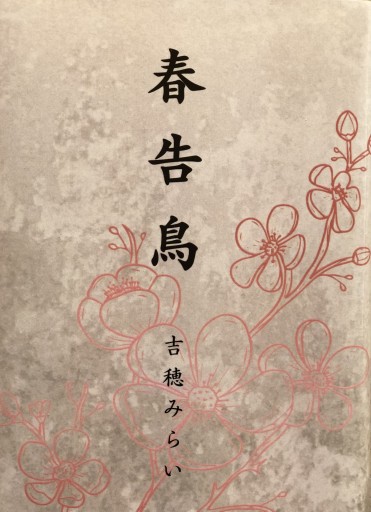 春告鳥
吉穂みらい